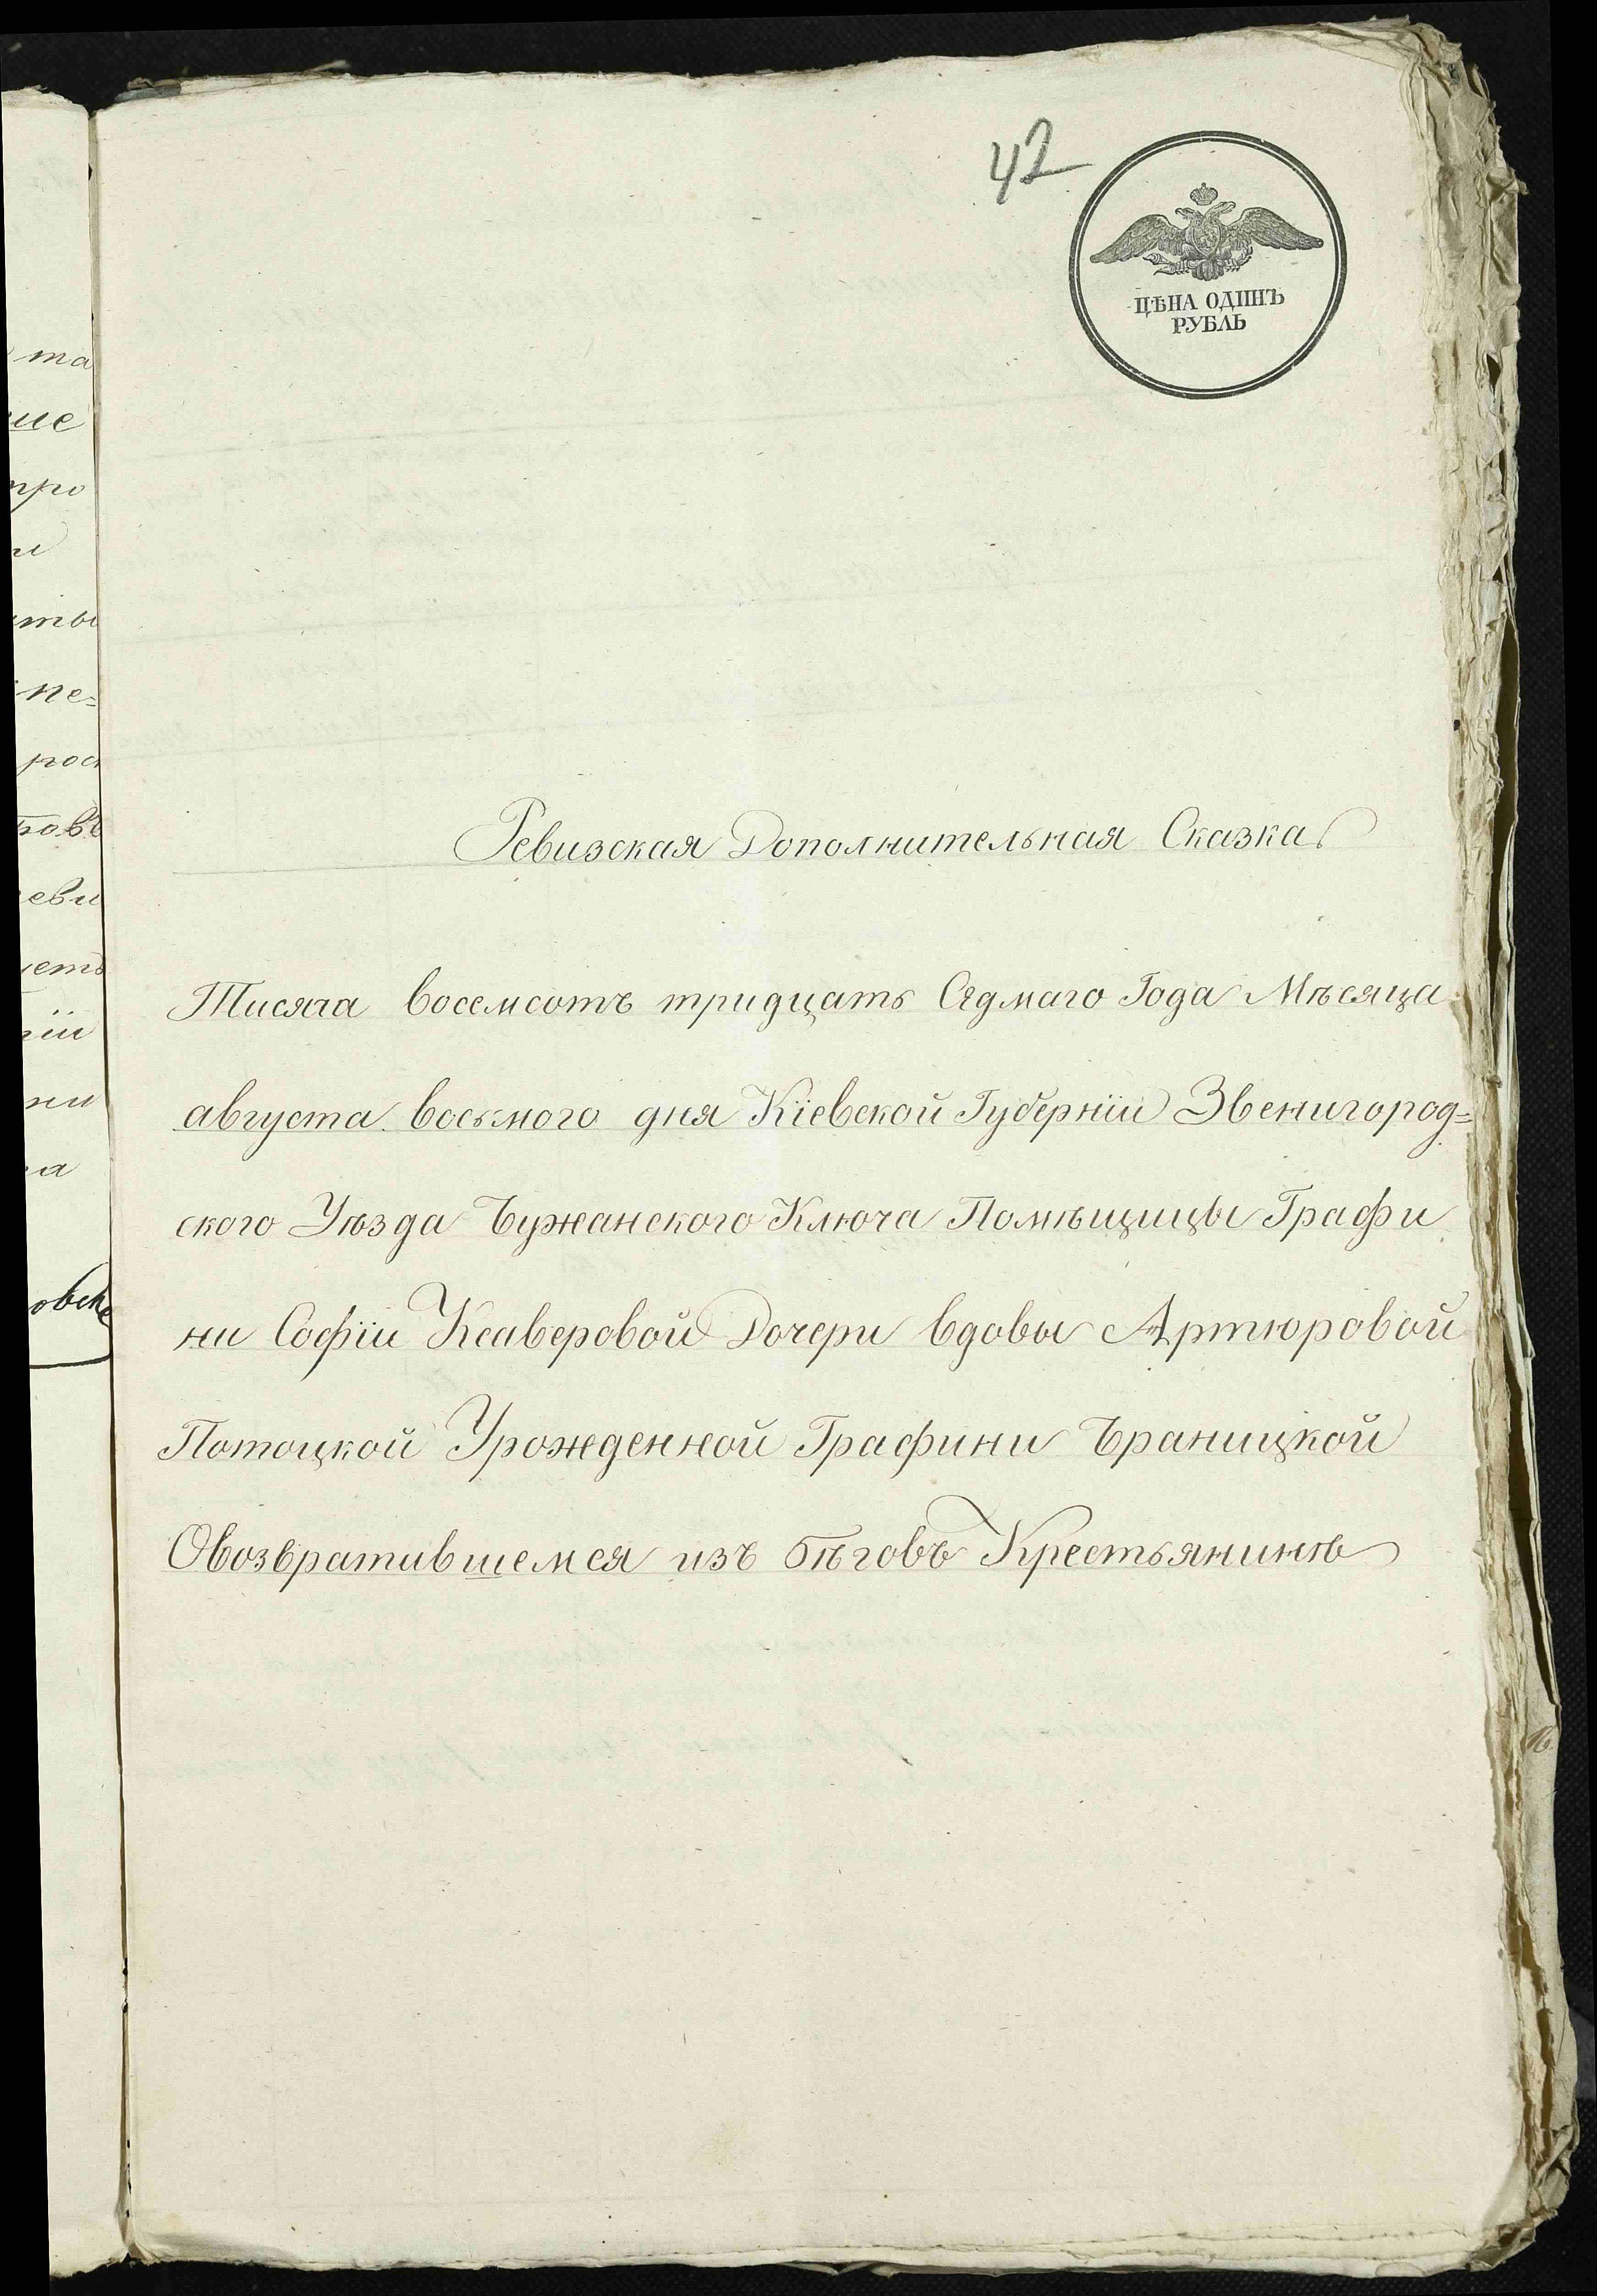 42
ЦѢНА ОДИНЪ
РУБЛЬ
Ревизская Дополнительная Сказка
Тисяча восемсотъ тридцать Седмаго Года Мѣсяца
августа восьмого дня Кіевской Губерніи Звенигород=
ского Уѣзда Бужанского Ключа Помѣщицы Графи
ни Софіи Ксаверовой Дочери вдовы Артюровой
Потоцкой Урожденной Графини Браницкой
Овозвратившемся изъ бѣговъ Крестьянинѣ
та
ше
про
и
ты
пе=
рос
ровъ
еви
етъ
ніи
ни
а
овск